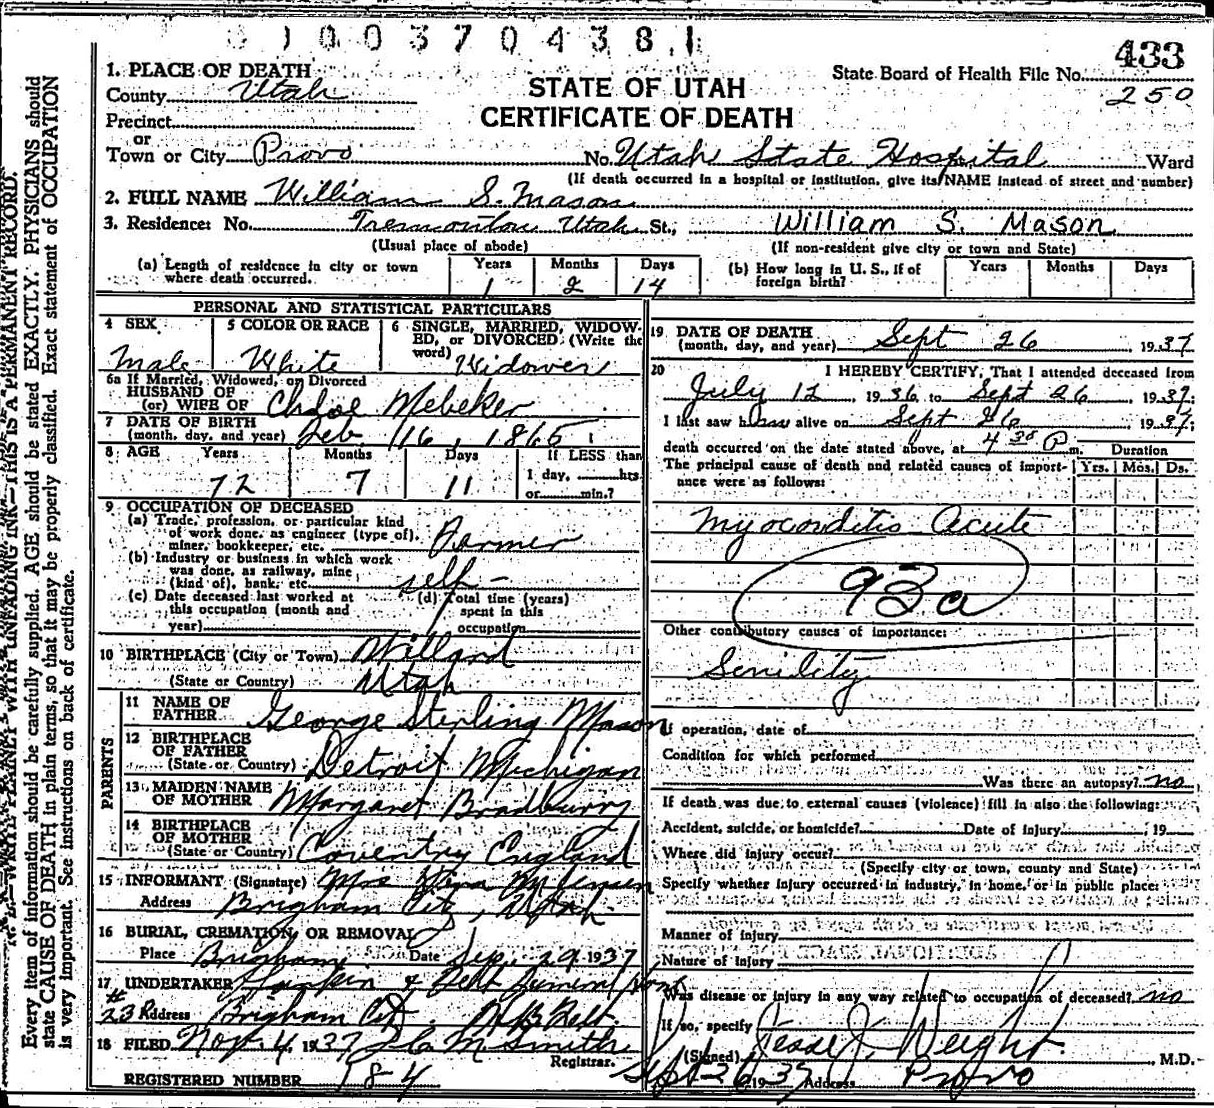 0 1 0 0 3 7 0 4 3 8 1
433
State Board of Health File No.
250
1. PLACE OF DEATH
County Utah
STATE OF UTAH
CERTIFICATE OF DEATH
Precinct
or
Town or City Provo No. Utah State Hospital Ward
(If death occurred in a hospital or institution, give its NAME instead of street and number)
2. FULL NAME William S. Mason
3. Residence: No. Tremonton Utah St., William S. Mason
(Usual place of abode) (If non-resident give city or town and State)
(a) Length of residence in city or town where death occurred. Years 1 Months 2 Days 14
(b) How long in U. S., if of foreign birth? Years Months Days
PERSONAL AND STATISTICAL PARTICULARS
4 SEX Male
5 COLOR OR RACE White
6 SINGLE, MARRIED, WIDOW-
ED, or DIVORCED (Write the
word) Widower
6a If Married, Widowed, or Divorced
HUSBAND OF
(or) WIFE OF Chloe Mebeker
7 DATE OF BIRTH
(month, day, and year) Feb. 16, 1865
8 AGE Years 72 Months 7 Days 11
If LESS than
1 day, hrs.
or min.?
9 OCCUPATION OF DECEASED
(a) Trade, profession, or particular kind
of work done, as engineer (type of),
miner, bookkeeper, etc. Farmer
(b) Industry or business in which work
was done, as railway, mine
(kind of), bank, etc. self -
(c) Date deceased last worked at
this occupation (month and
year)
(d) Total time (years)
spent in this
occupation
10 BIRTHPLACE (City or Town) Willard
(State or Country) Utah
PARENTS
11 NAME OF
FATHER George Sterling Mason
12 BIRTHPLACE
OF FATHER
(State or Country) Detroit Michigan
13 MAIDEN NAME
OF MOTHER Margaret Bradburry
14 BIRTHPLACE
OF MOTHER
(State or Country) Coventry England
15 INFORMANT (Signature) Mrs M Jensen
Address Brigham City, Utah
16 BURIAL, CREMATION, OR REMOVAL
Place Brigham Date Sep. 29 1937
17 UNDERTAKER & Felt Funeral Home
#23 Address Brigham City. Felt.
18 FILED Nov. 4, 1937 M Smith
Registrar.
REGISTERED NUMBER 184
19 DATE OF DEATH
(month, day, and year) Sept 26, 1937
20 I HEREBY CERTIFY, That I attended deceased from
July 12 1936, to Sept 26, 1937;
I last saw him alive on Sept 26, 1937;
death occurred on the date stated above, at 4 30 P m.
Duration
The principal cause of death and related causes of import-
ance were as follows:
Yrs. Mos. Ds.
Myocarditis Acute
93a
Other contributory causes of importance:
Senility
If operation, date of
Condition for which performed
Was there an autopsy? no
If death was due to external causes (violence) fill in also the following:
Accident, suicide, or homicide? Date of injury , 19
Where did injury occur?
(Specify city or town, county and State)
Specify whether injury occurred in industry, in home, or in public place:
Manner of injury
Nature of injury
Was disease or injury in any way related to occupation of deceased? no
If so, specify
(Signed) Jesse J. Weight M.D.
Sept 26 1937 Address Provo
N. B.—WRITE PLAINLY WITH UNFADING INK—THIS IS A PERMANENT RECORD
Every item of information should be carefully supplied. AGE should be stated EXACTLY. PHYSICIANS should
state CAUSE OF DEATH in plain terms, so that it may be properly classified. Exact statement of OCCUPATION
is very important. See instructions on back of certificate.